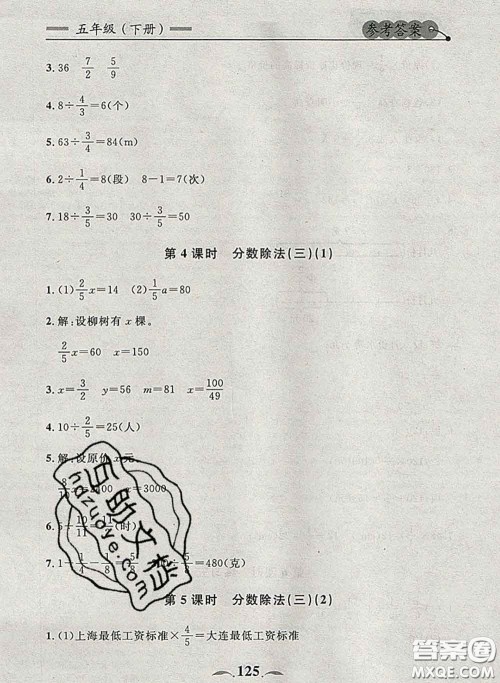 五年级（下册）
参考答案
3. 36  7/2  5/9
4. 8÷4/3=6(个)
5. 63÷3/4=84(m)
6. 2÷1/4=8(段)  8-1=7(次)
7. 18÷3/5=30  30÷3/5=50
第4课时  分数除法(三)(1)
1. (1) 2/5 x=14  (2) 1/5 a=80
2. 解:设柳树有x棵。
2/5 x=60  x=150
3. x=3/2  y=56  m=81  x=100/49
4. 10÷2/5=25(人)
5. 解:设原价x元。
8/10 x=2400  x=3000
6. (时)
7. 480(克)
互助文档
hdzuoye.com
第5课时  分数除法(三)(2)
1. (1)上海最低工资标准×4/5=大连最低工资标准
125
答案圈
MXQE.COM